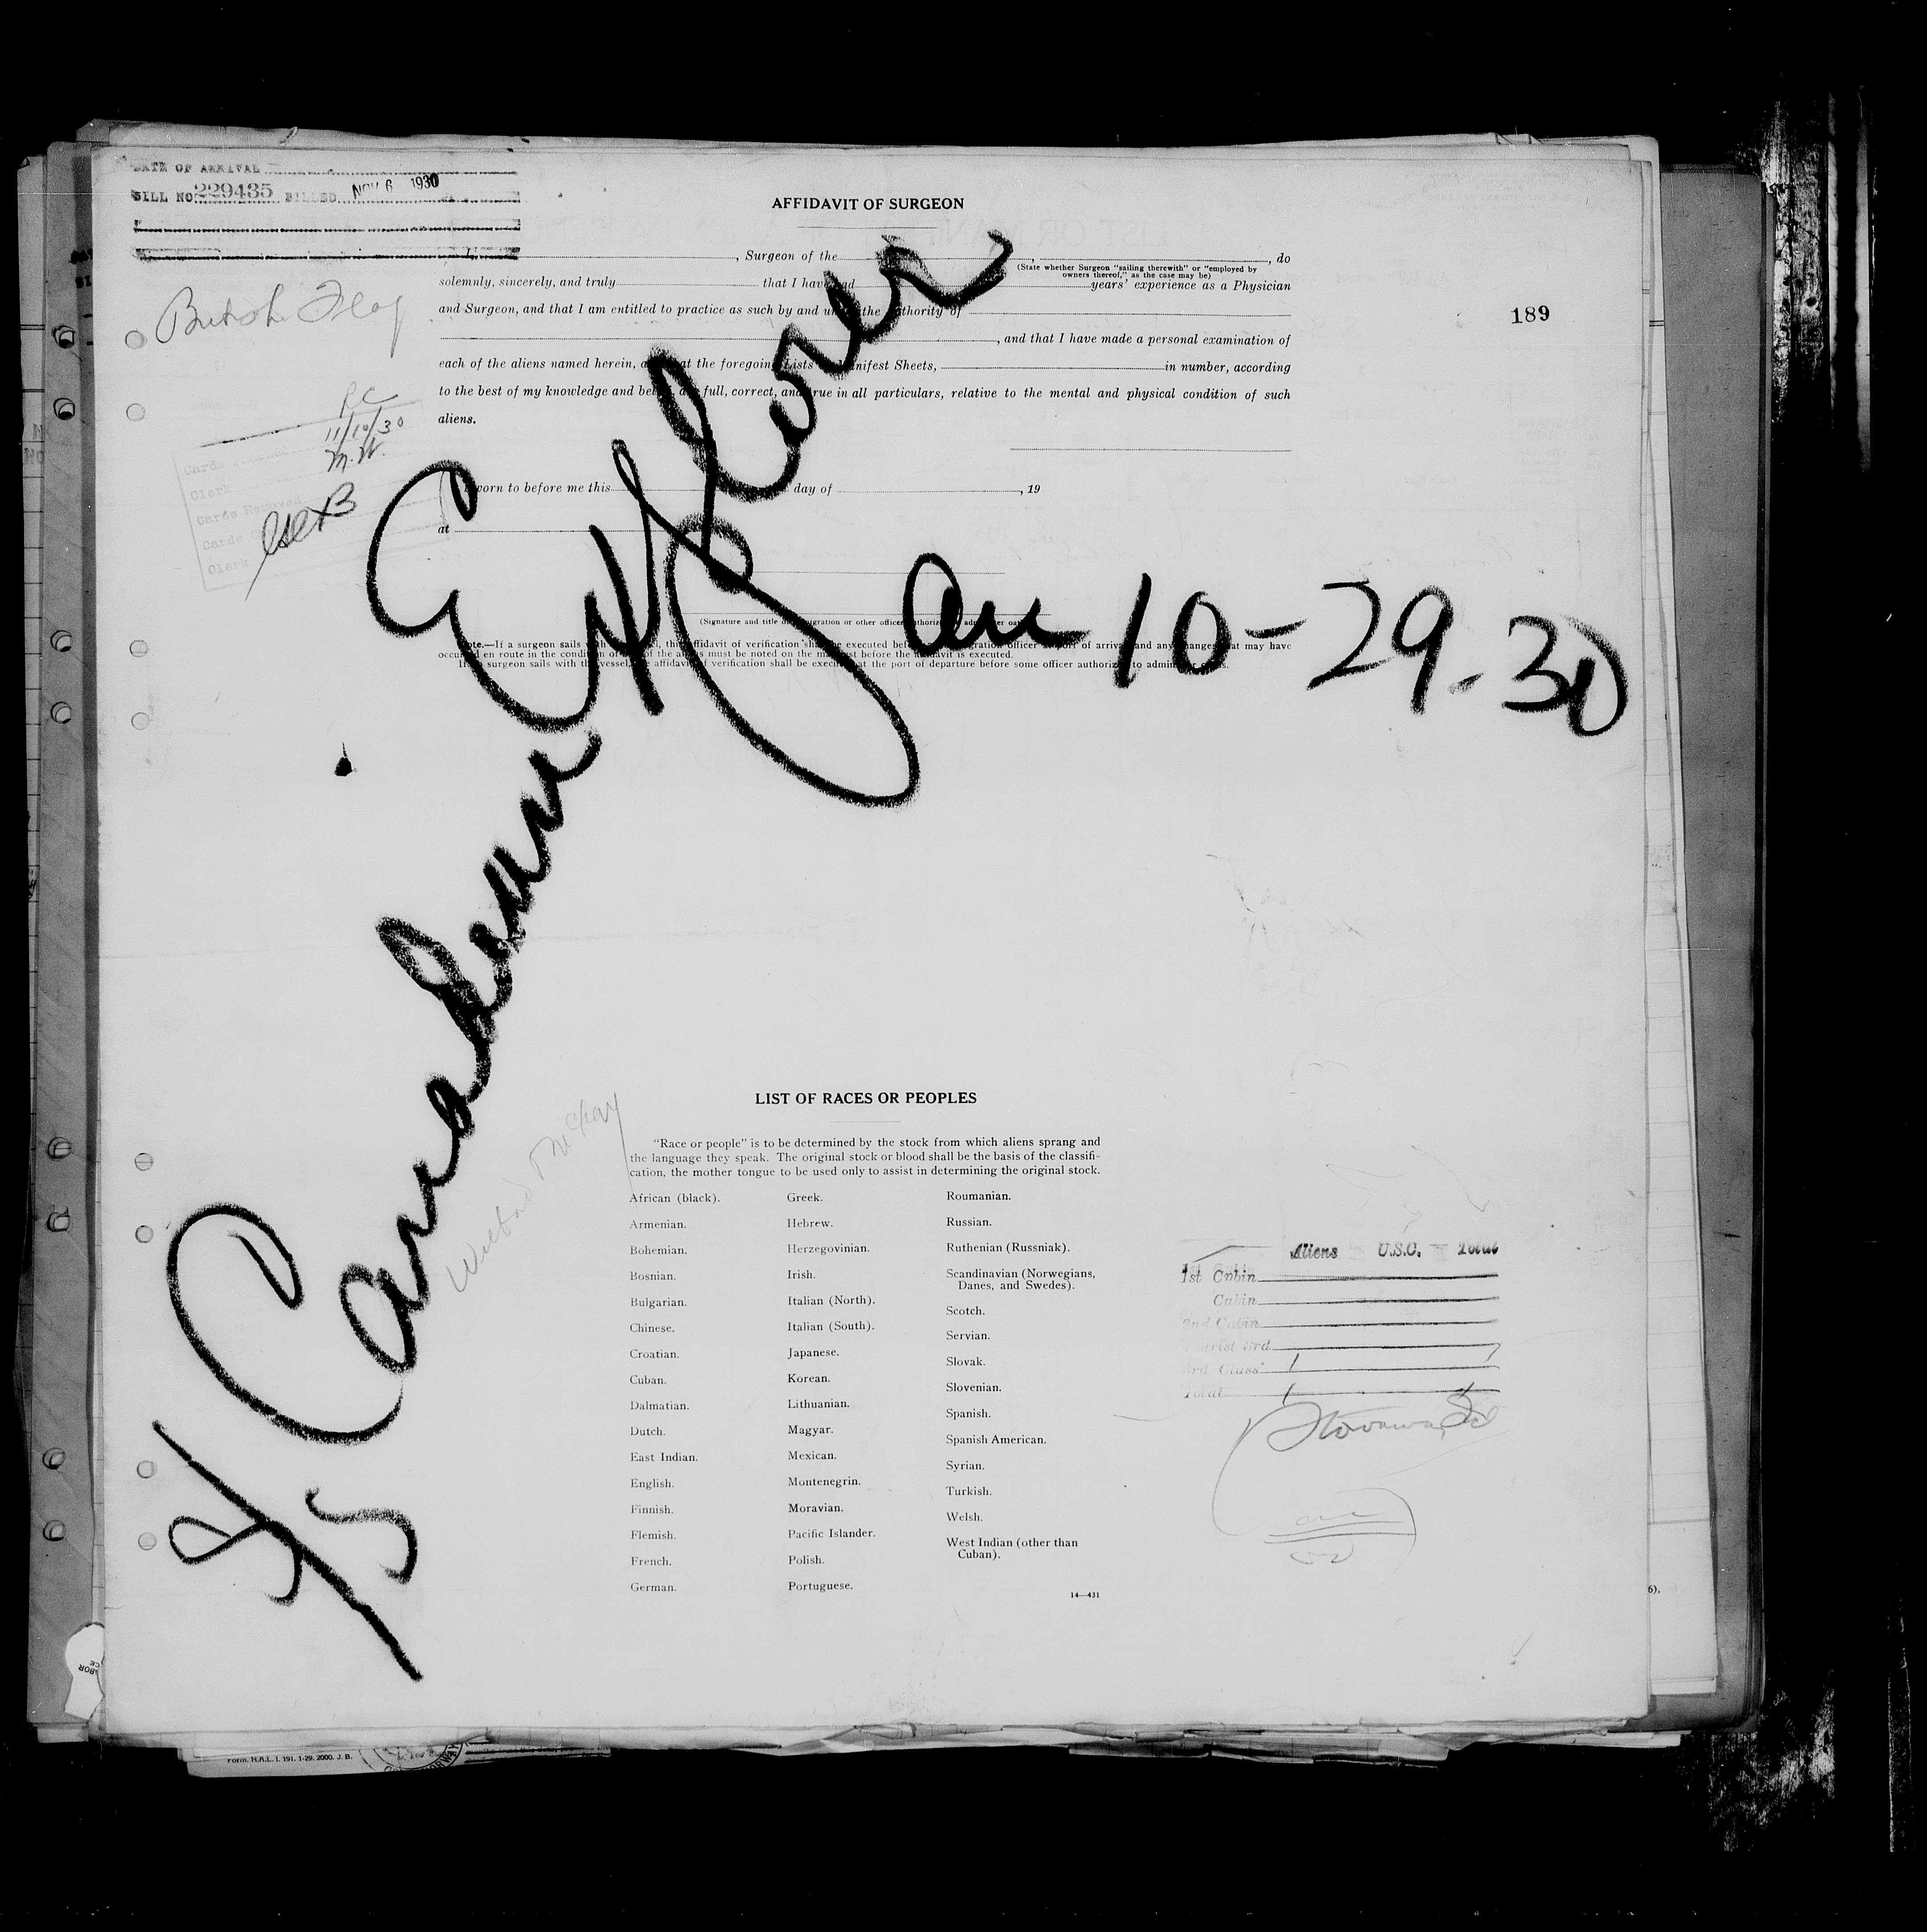 DATE OF ARRIVAL
BILL NO. 229435 BILLED NOV 6 1930
AFFIDAVIT OF SURGEON
, Surgeon of the , , do
(State whether Surgeon "sailing therewith" or "employed by
owners thereof," as the case may be)
solemnly, sincerely, and truly that I have had years' experience as a Physician
and Surgeon, and that I am entitled to practice as such by and under the authority of
, and that I have made a personal examination of
each of the aliens named herein, and that the foregoing Lists Manifest Sheets, in number, according
to the best of my knowledge and belief, are full, correct, and true in all particulars, relative to the mental and physical condition of such
aliens.
British Flag
189
P.C
11/10/30
M.W.
Cards
Clerk
Cards
Cards
Clerk
Sworn to before me this day of , 19
at
(Signature and title of immigration or other officer authorized to administer oaths)
Note.—If a surgeon sails with the vessel, this affidavit of verification shall be executed before an immigration officer at port of arrival and any changes that may have
occurred en route in the condition of any of the aliens must be noted on the manifest before the affidavit is executed.
If no surgeon sails with the vessel, the affidavit of verification shall be executed at the port of departure before some officer authorized to administer
S/S Canadian Explorer
arr 10-29-30
LIST OF RACES OR PEOPLES
"Race or people" is to be determined by the stock from which aliens sprang and
the language they speak. The original stock or blood shall be the basis of the classifi-
cation, the mother tongue to be used only to assist in determining the original stock.
African (black).
Armenian.
Bohemian.
Bosnian.
Bulgarian.
Chinese.
Croatian.
Cuban.
Dalmatian.
Dutch.
East Indian.
English.
Finnish.
Flemish.
French.
German.
Greek.
Hebrew.
Herzegovinian.
Irish.
Italian (North).
Italian (South).
Japanese.
Korean.
Lithuanian.
Magyar.
Mexican.
Montenegrin.
Moravian.
Pacific Islander.
Polish.
Portuguese.
Roumanian.
Russian.
Ruthenian (Russniak).
Scandinavian (Norwegians,
Danes, and Swedes).
Scotch.
Servian.
Slovak.
Slovenian.
Spanish.
Spanish American.
Syrian.
Turkish.
Welsh.
West Indian (other than
Cuban).
14—431
Aliens U.S.C. Total
1st Cabin
Cabin
2nd Cabin
Tourist 3rd
3rd Class 1 1
Total 1 1
Stowaway
Form. N.A.L. I. 191. 1-29. 2000. J. B.